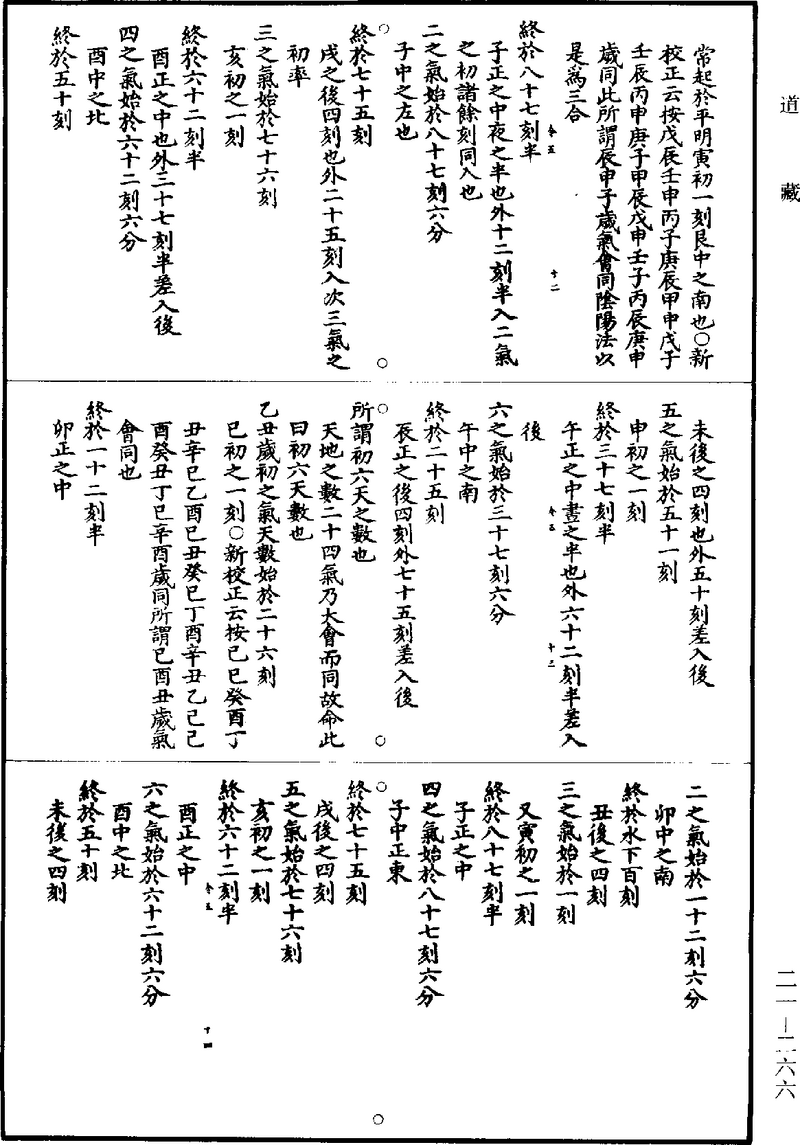 道藏
常起於平明寅初一刻艮中之南也○新
校正云按戊辰壬申丙子庚辰甲申戊子
壬辰丙申庚子甲辰戊申壬子丙辰庚申
歲同此所謂辰申子歲氣會同陰陽法以
是為三合
終於八十七刻半
子正之中夜之半也外十二刻半入二氣
之初諸餘刻同入也
二之氣始於八十七刻六分
子中之左也
終於七十五刻
戌之後四刻也外二十五刻入次三氣之
初率
三之氣始於七十六刻
亥初之一刻
終於六十二刻半
酉正之中也外三十七刻半差入後
四之氣始於六十二刻六分
酉中之北
終於五十刻
未後之四刻也外五十刻差入後
五之氣始於五十一刻
申初之一刻
終於三十七刻半
午正之中晝之半也外六十二刻半差入
後
六之氣始於三十七刻六分
午中之南
終於二十五刻
辰正之後四刻外七十五刻差入後
所謂初六天之數也
天地之數二十四氣乃大會而同故命此
曰初六天數也
乙丑歲初之氣天數始於二十六刻
巳初之一刻○新校正云按己巳癸酉丁
丑辛巳乙酉己丑癸巳丁酉辛丑乙巳己
酉癸丑丁巳辛酉歲同所謂巳酉丑歲氣
會同也
終於一十二刻半
卯正之中
二之氣始於一十二刻六分
卯中之南
終於水下百刻
丑後之四刻
三之氣始於一刻
又寅初之一刻
終於八十七刻半
子正之中
四之氣始於八十七刻六分
子中正東
終於七十五刻
戌後之四刻
五之氣始於七十六刻
亥初之一刻
終於六十二刻半
酉正之中
六之氣始於六十二刻六分
酉中之北
終於五十刻
未後之四刻
十二
十三
十四
二一—二六六